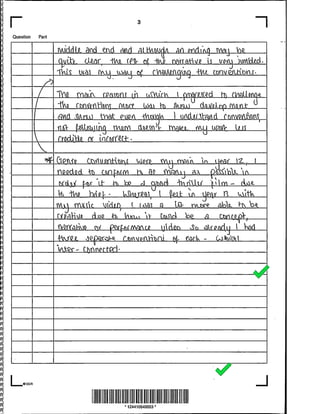 3
Question Part
middle and end and although an ending may be
quite clear, the rest of the narrative is very jumbled.
This was my way of challenging the conventions.
The main reasons in which I progressed to challenge
the conventions more was to show development
and show that even though I understand conventions
not following them doesn't make my work less
credible or incorrect.
Genre conventions were my main in year 12, I
needed to conform to as many as possible in
order for it to be a good thriller film - due
to the brief - Whereas, I felt in year 13 with
my music video I was a lot more able to be
creative due to how it could be a concept,
narrative or performance video so already I had
three seperate conventions of each - whilst
inter-connected.